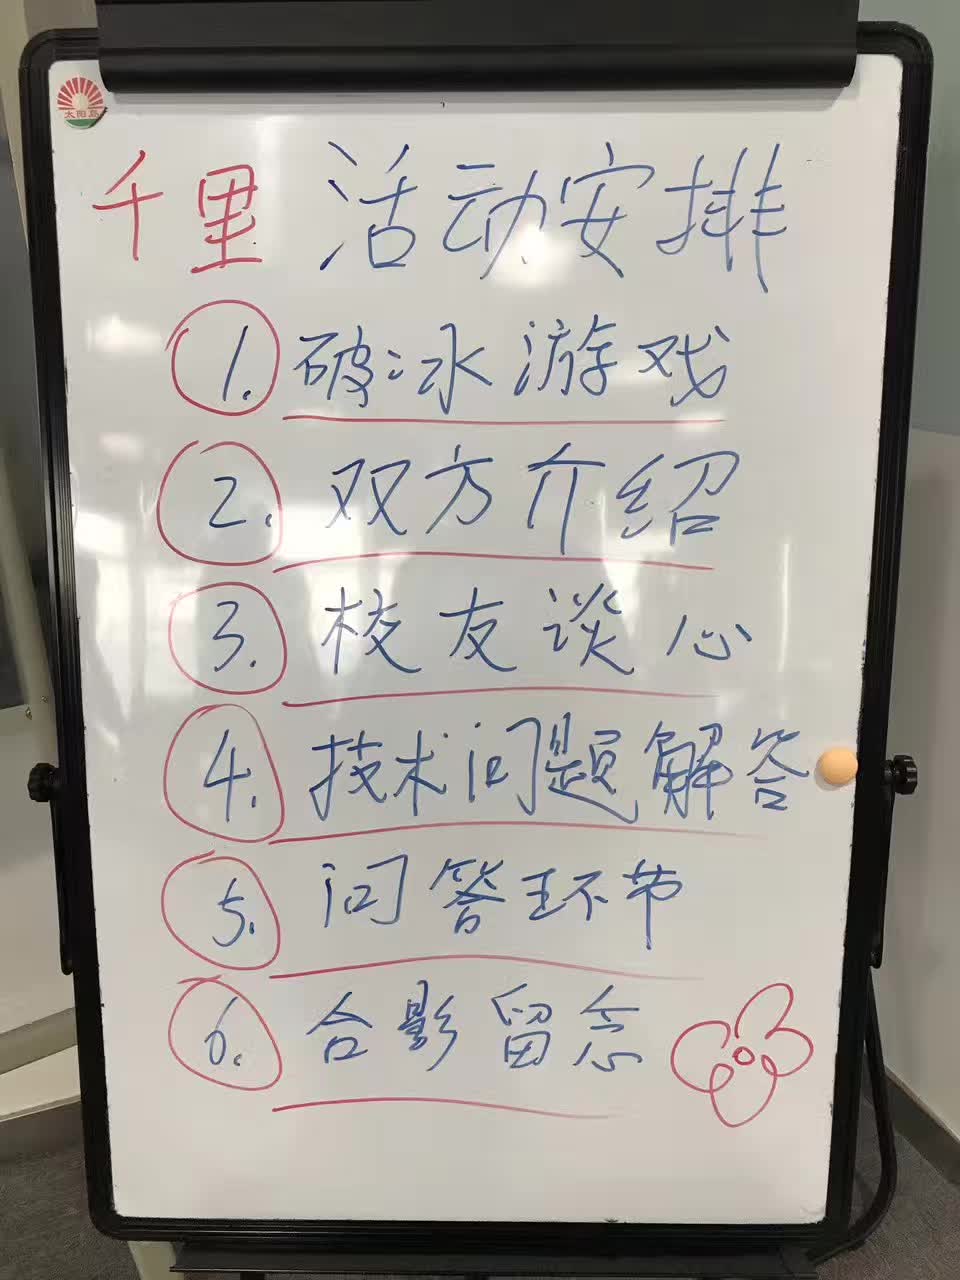 太阳岛
千里 活动安排
1. 破冰游戏
2. 双方介绍
3. 校友谈心
4. 技术问题解答
5. 问答环节
6. 合影留念